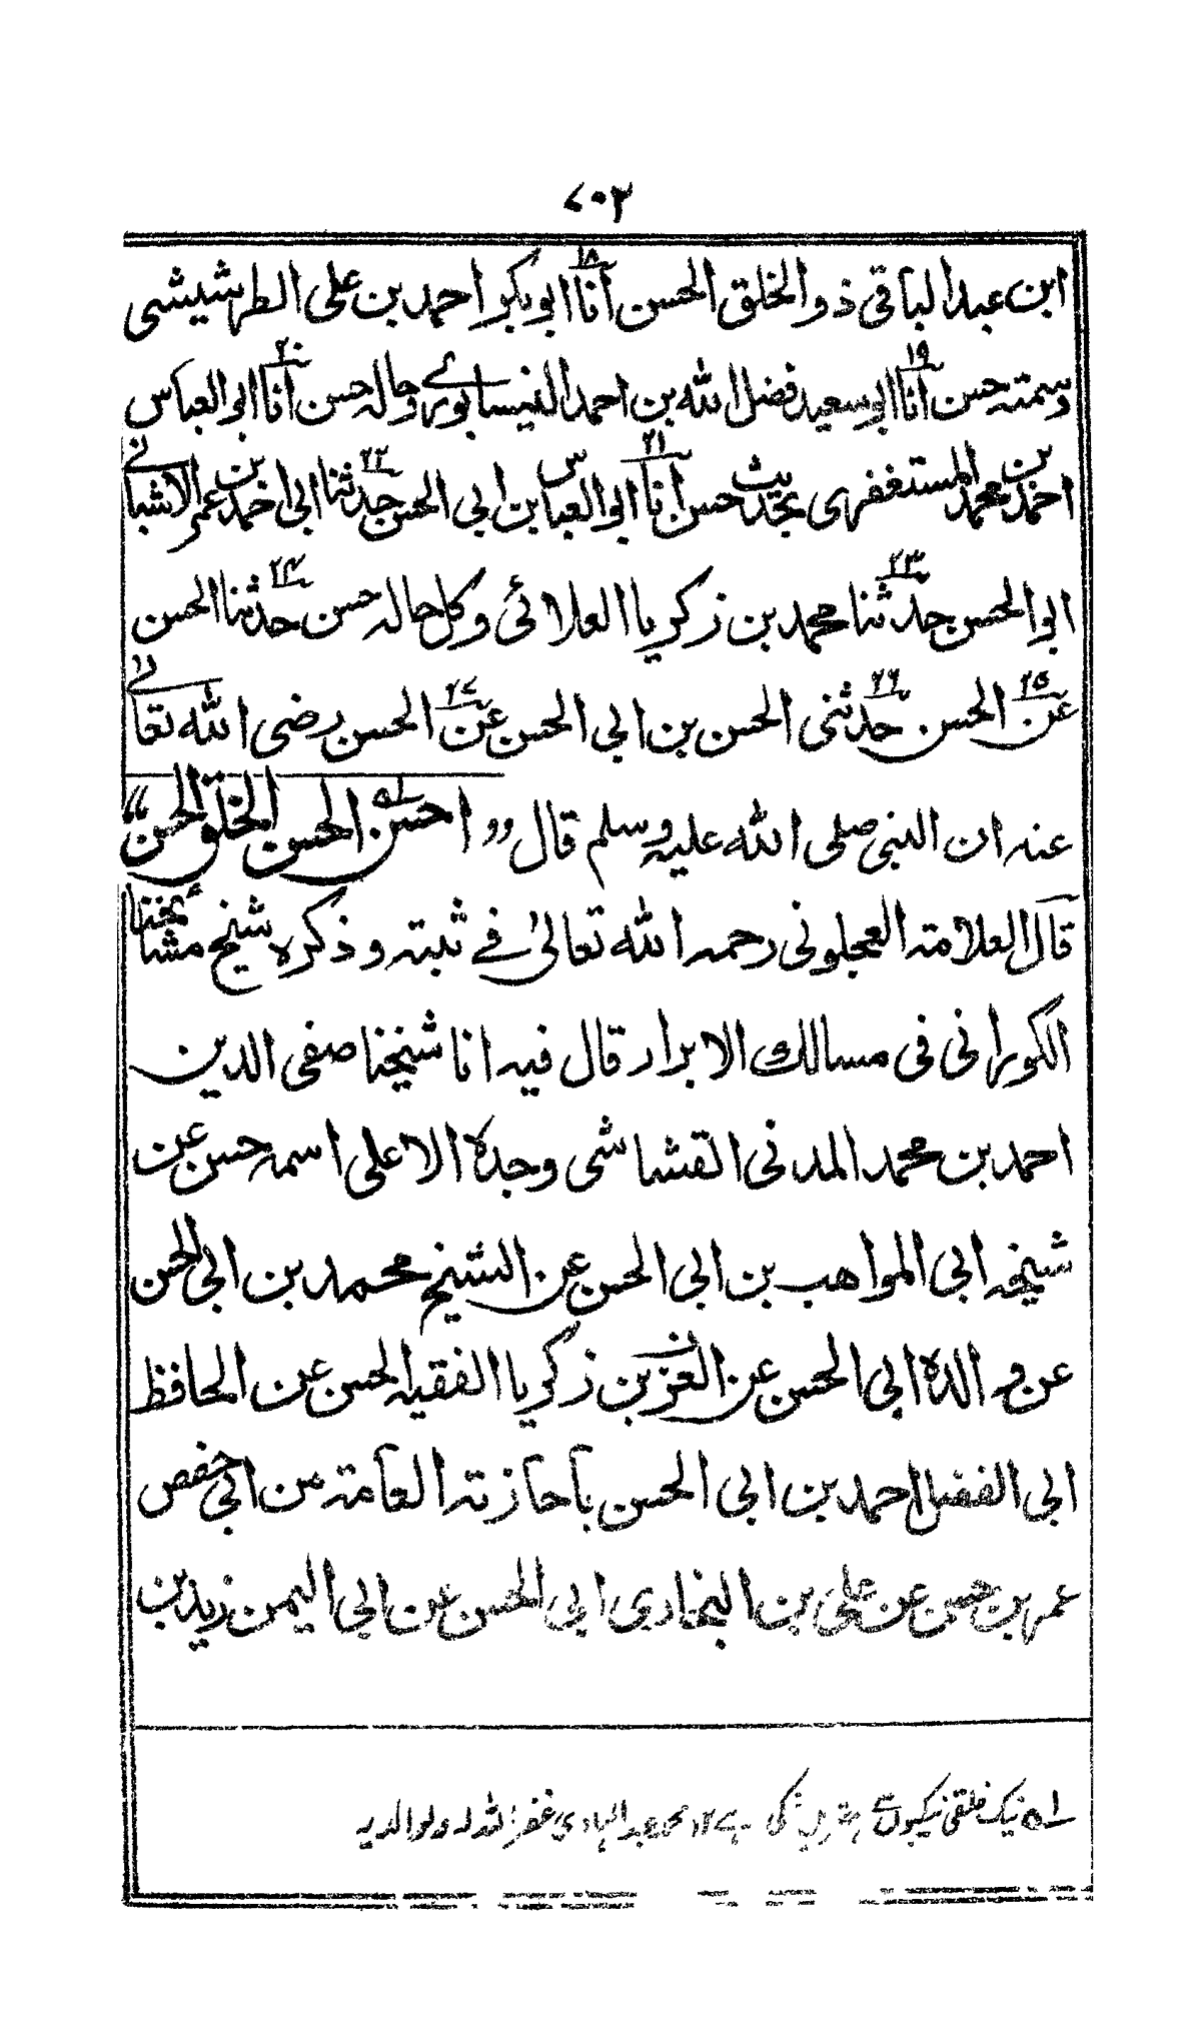 ۷۰۲
ابن عبد الباقی ذو الخلق الحسن انا۱۸ ابو بکر احمد بن علی الطرشیشی
وسمته حسن انا۱۹ ابو سعید فضل الله بن احمد النیسابوری وحاله حسن انا۲۰ ابو العباس
احمد بن محمد المستغفری بحدیث حسن انا۲۱ ابو العباس بن ابی الحسن حدثنا۲۲ ابی احمد بن عمر الاشبانی
ابو الحسن حدثنا۲۳ محمد بن زکریا العلائی وکل حاله حسن حدثنا۲۴ الحسن
عن۲۵ الحسن حدثنی۲۶ الحسن بن ابی الحسن عن۲۷ الحسن رضی الله تعالی
عنه ان النبی صلی الله علیه وسلم قال “احسن۱ الحسن الخلق الحسن”
قال العلامة العجلونی رحمه الله تعالیٰ فے ثبته وذکره شیخ مشائخنا
الکورانی فی مسالک الابرار قال فیه انا شیخنا صفی الدین
احمد بن محمد المدنی القشاشی وجده الاعلی اسمه حسن عن
شیخه ابی المواهب بن ابی الحسن عن الشیخ محمد بن ابی الحسن
عن والده ابی الحسن عن العز بن زکریا الفقیه الحسن عن الحافظ
ابی الفضل احمد بن ابی الحسن باجازته العامة من ابی حفص
عمر بن حسن عن علی بن البخاری ابی الحسن عن ابی الیمن زید بن
۱؎ نیک خلقی نیکیوں سے بہتر نیکی ہے ۱۲ محمد عبد الهادی غفر الله له ولوالدیه